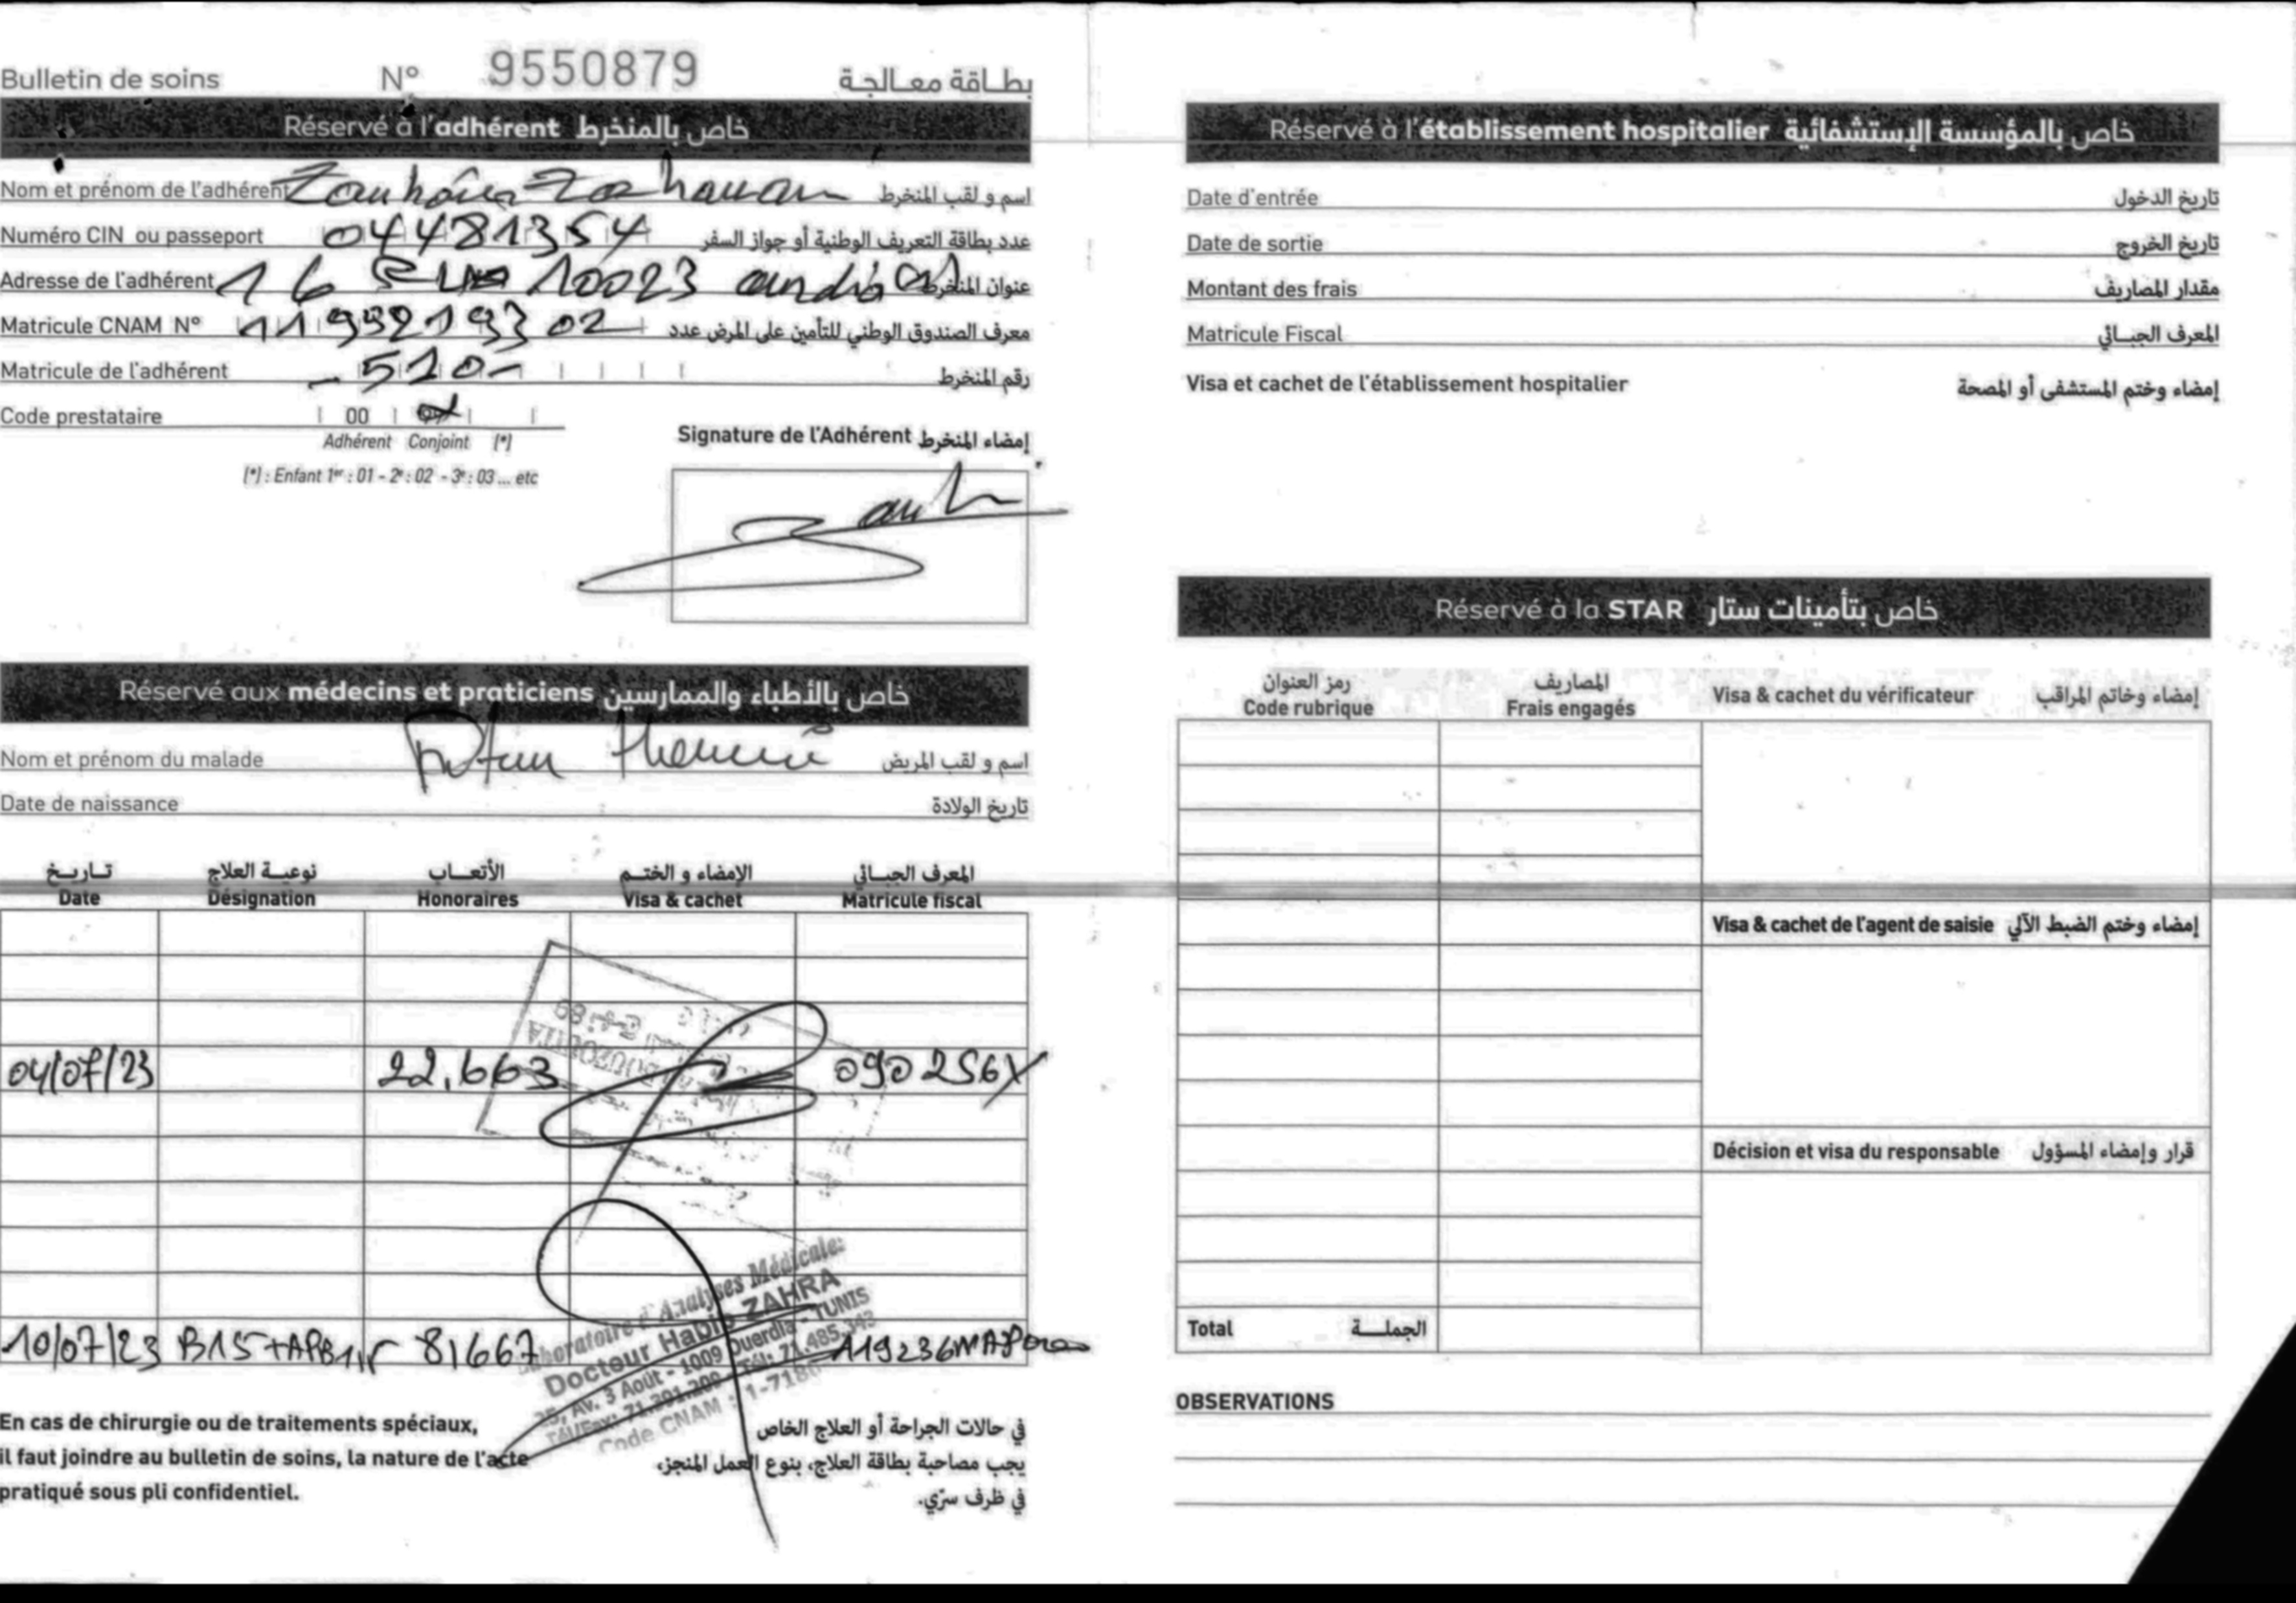 Bulletin de soins N° 9550879 بطاقة معالجة
Réservé à l'adhérent خاص بالمنخرط
Nom et prénom de l'adhérent اسم و لقب المنخرط
Numéro CIN ou passeport 04481354 عدد بطاقة التعريف الوطنية أو جواز السفر
Adresse de l'adhérent 16 Rue 10023 عنوان المنخرط
Matricule CNAM N° معرف الصندوق الوطني للتأمين على المرض عدد
Matricule de l'adhérent - 510 - رقم المنخرط
Code prestataire 00
Adhérent Conjoint (*)
(*) : Enfant 1er : 01 - 2e : 02 - 3e : 03 ... etc
Signature de l'Adhérent إمضاء المنخرط
Réservé aux médecins et praticiens خاص بالأطباء والممارسين
Nom et prénom du malade اسم و لقب المريض
Date de naissance تاريخ الولادة
تاريخ نوعية العلاج الأتعاب الإمضاء و الختم المعرف الجبائي
Date Désignation Honoraires Visa & cachet Matricule fiscal
04/07/23 22,663 090256Y
Laboratoire d'Analyses Médicales
Docteur Habib ZAHRA
25, Av. 3 Août - 1009 Ouerdia - TUNIS
Tél/Fax: 71.391.200 - Tél: 71.485.343
Code CNAM : 1-718
10/07/23 B15+APB1,5 8,667
En cas de chirurgie ou de traitements spéciaux,
il faut joindre au bulletin de soins, la nature de l'acte
pratiqué sous pli confidentiel.
في حالات الجراحة أو العلاج الخاص
يجب مصاحبة بطاقة العلاج، بنوع العمل المنجز،
في ظرف سرّي.
Réservé à l'établissement hospitalier خاص بالمؤسسة الإستشفائية
Date d'entrée تاريخ الدخول
Date de sortie تاريخ الخروج
Montant des frais مقدار المصاريف
Matricule Fiscal المعرف الجبائي
Visa et cachet de l'établissement hospitalier إمضاء وختم المستشفى أو المصحة
Réservé à la STAR خاص بتأمينات ستار
رمز العنوان المصاريف
Code rubrique Frais engagés Visa & cachet du vérificateur إمضاء وخاتم المراقب
Visa & cachet de l'agent de saisie إمضاء وختم الضبط الآلي
Décision et visa du responsable قرار وإمضاء المسؤول
Total الجملة
OBSERVATIONS